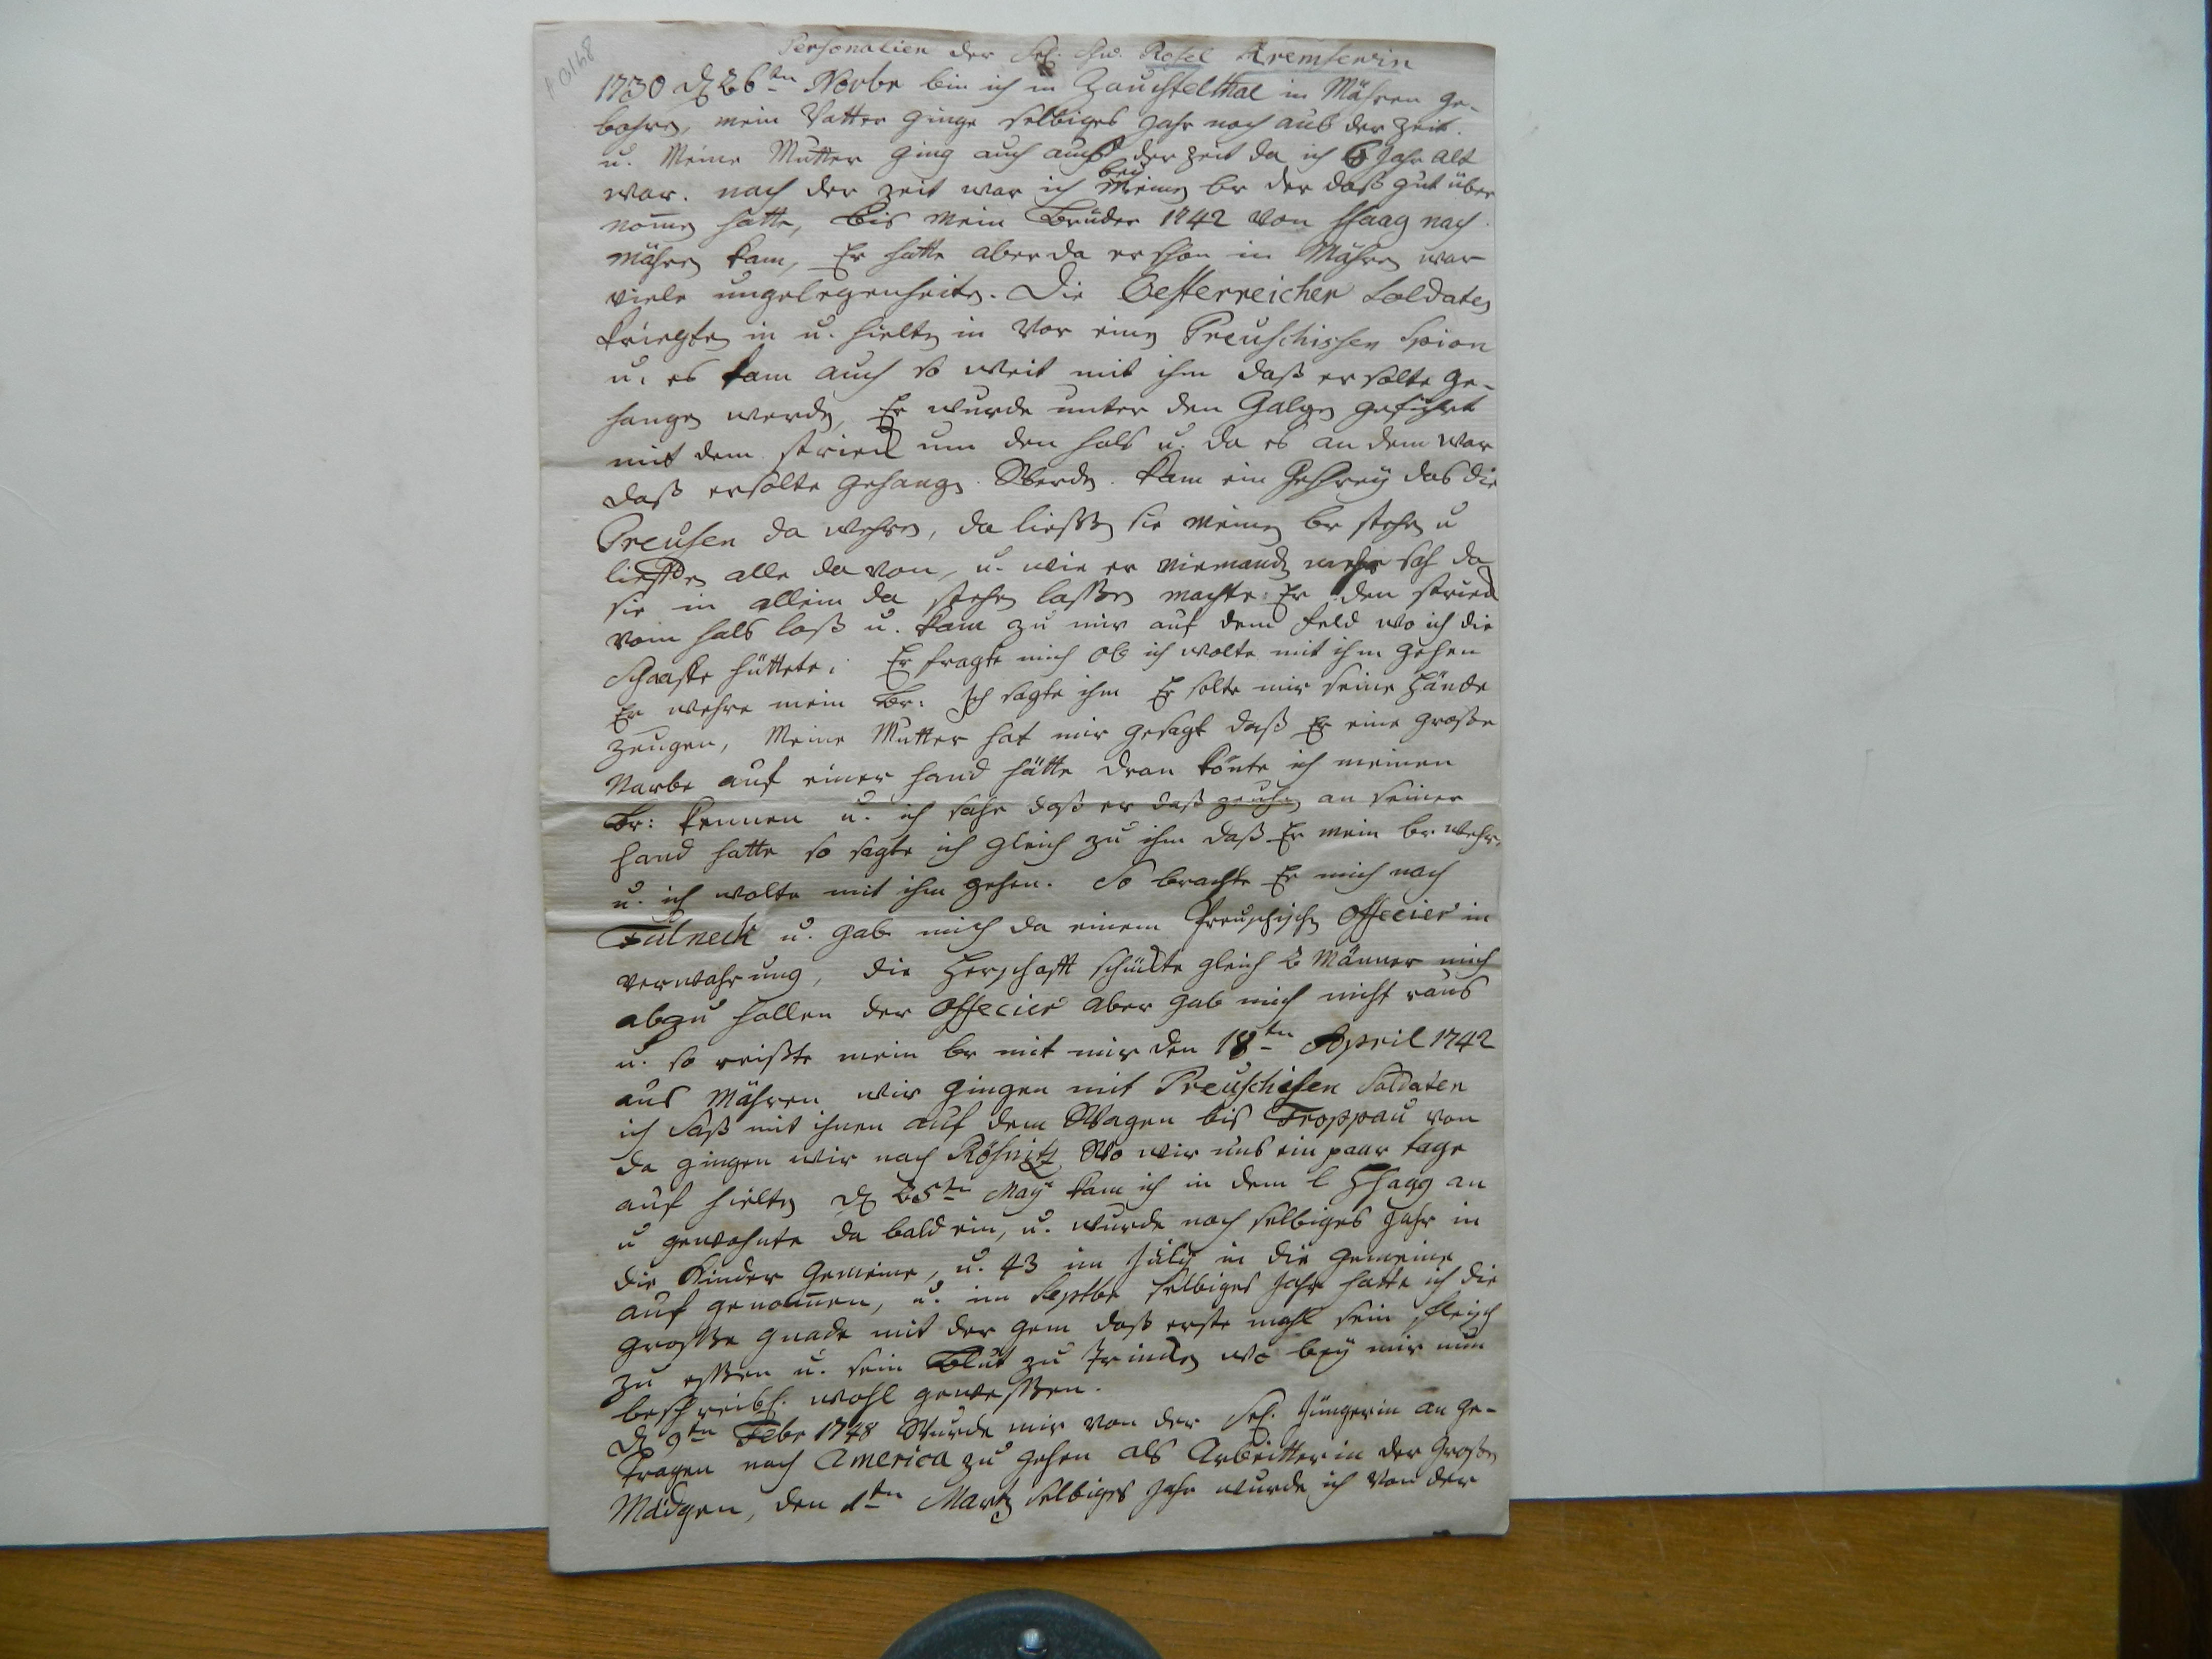 Personalien der Sel. Schw. Rosel Kremserin
1730 d 26tn Novbr bin ich in Zauchtelthal in Mähren ge-
bohren, mein Vatter ginge selbiges Jahr noch aus der Zeit.
u. Meine Mutter ging auch aus der zeit da ich 6 Jahr alt
war. nach der zeit war ich bey Meinen br der daß gut über
nomen hatte, bis mein Bruder 1742 von Hhaag nach
mähren kam, Er hatte aber da er schon in Mähren war
viele ungelegenheiten. Die Oesterreicher Soldaten
kriegten in u. hielten in Vor einen Preuschissen Spion
u. es kam auch so weit mit ihm daß er solte ge-
hangen werden, Er wurde unter den Galgen geführt
mit dem strick um den hals u. da es an dem war
daß er solte gehangen Werden. kam ein Geschrey das die
Preusen da wehren, da liessen sie meinen br stehen u
lieffen alle da von, u. wie er niemand mehr sah da
sie in allein da stehen lassen machte Er den strick
vom hals loß u. kam zu mir auf dem feld wo ich die
Schaaffe hüttete. Er fragte mich ob ich wolte mit ihm gehen
Er wehre mein Br: Ich sagte ihm Er solte mir seine Hände
zeugen, Meine Mutter hat mir gesagt daß Er eine grosse
Narbe auf einer hand hätte dran könte ich meinen
Br: kennen u. ich sahe daß er daß zeuchen an seiner
hand hatte so sagte ich gleich zu ihm daß Er mein br. wehre
u. ich wolte mit ihm gehen. So brachte Er mich nach
Fulneck u. gab mich da einem Preuschischen Offecier in
verwahrung, die Herschafft schückte gleich 2 Männer mich
abzu hollen der Offecier aber gab mich nicht raus
u. so reißte mein br mit mir den 18tn April 1742
aus Mähren wir gingen mit Preuschisen Soldaten
ich saß mit ihnen auf dem Wagen bis Troppau von
da gingen wir nach Rösnitz Wo wir uns ein paar tage
auf hielten d 25tn May kam ich in dem l Hhaag an
u gewohnte da bald ein, u. wurde noch selbiges Jahr in
die Kinder Gemeine, u. 43 im July in die Gemeine
auf genommen, u. im Septbr selbiges Jahr hatte ich die
grosse gnade mit der gem daß erste mahl sein fleisch
zu essen u. sein Blut zu Trincken wo bey mir nun
beschreibl. wohl gewessen.
d 9tn Febr 1748 Wurde mir von der Sel. Jüngerin an ge-
tragen nach America zu gehen als Arbeitterin der grossen
Mädgen, den 1tn Martz selbiges Jahr wurde ich von der